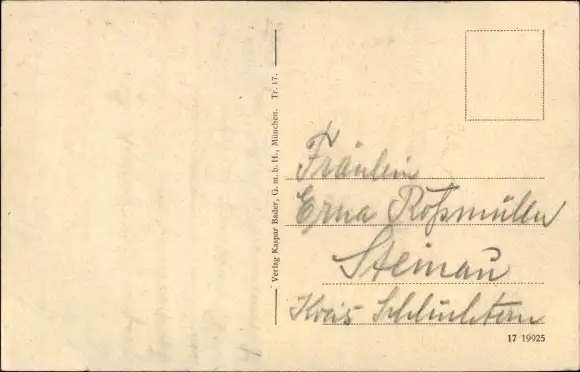 Verlag Kaspar Bader, G. m. b. H., München. Tr. 17.
Fräulein
Erna Roßmüller
Steinau
Kreis Schlüchtern
17 19925